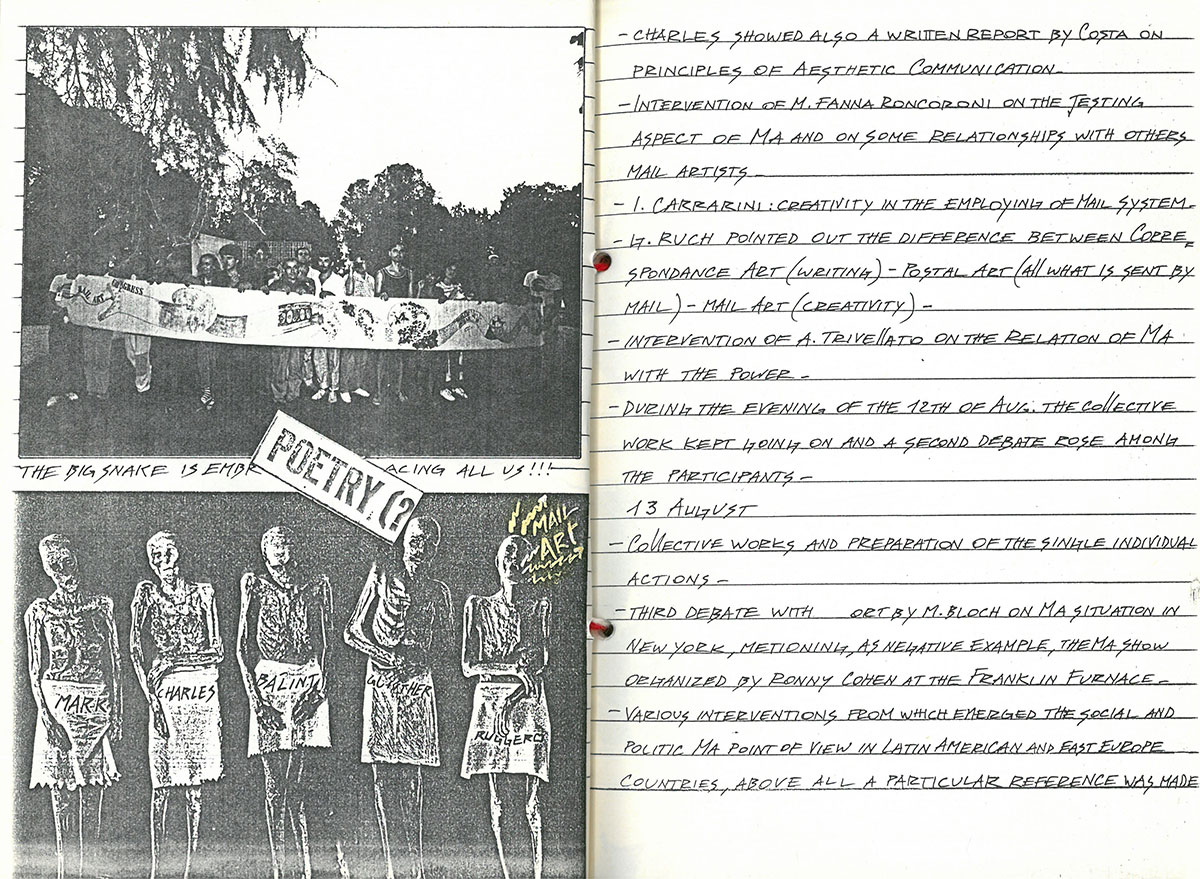 MAIL ART CONGRESS
THE BIG SNAKE IS EMBR ACING ALL US!!!
POETRY (?
MAIL
ART
MARK
CHARLES
BALINT
GUNTHER
RUGGERO
- CHARLES SHOWED ALSO A WRITTEN REPORT BY COSTA ON
PRINCIPLES OF AESTHETIC COMMUNICATION-
- INTERVENTION OF M. FANNA RONCORONI ON THE JESTING
ASPECT OF MA AND ON SOME RELATIONSHIPS WITH OTHERS
MAIL ARTISTS-
- I. CARRARINI: CREATIVITY IN THE EMPLOYING OF MAIL SYSTEM-
- G. RUCH POINTED OUT THE DIFFERENCE BETWEEN CORRE_
SPONDANCE ART (WRITING) - POSTAL ART (ALL WHAT IS SENT BY
MAIL) - MAIL ART (CREATIVITY) -
- INTERVENTION OF A. TRIVELLATO ON THE RELATION OF MA
WITH THE POWER -
- DURING THE EVENING OF THE 12TH OF AUG. THE COLLECTIVE
WORK KEPT GOING ON AND A SECOND DEBATE ROSE AMONG
THE PARTICIPANTS -
13 AUGUST
- COLLECTIVE WORKS AND PREPARATION OF THE SINGLE INDIVIDUAL
ACTIONS -
- THIRD DEBATE WITH ORT BY M. BLOCH ON MA SITUATION IN
NEW YORK, METIONING, AS NEGATIVE EXAMPLE, THE MA SHOW
ORGANIZED BY RONNY COHEN AT THE FRANKLIN FURNACE -
- VARIOUS INTERVENTIONS FROM WHICH EMERGED THE SOCIAL AND
POLITIC MA POINT OF VIEW IN LATIN AMERICAN AND EAST EUROPE
COUNTRIES, ABOVE ALL A PARTICULAR REFERENCE WAS MADE